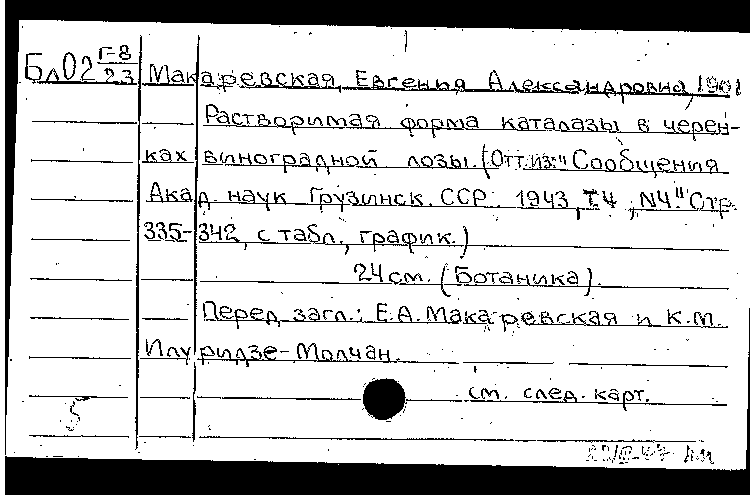 Бл02 Г-8/23
Макаревская, Евгения Александровна, 1901
Растворимая форма каталазы в черен-
ках виноградной лозы. (Отт. из: "Сообщения
Акад. наук Грузинск. ССР. 1943, т.4, N4." Стр.
335-342, с табл., график.)
24 см. (Ботаника).
Перед загл.: Е.А. Макаревская и К.М.
Илуридзе-Молчан.
см. след. карт.
5